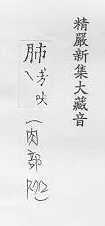 精嚴新集大藏音
肺芳吠(一肉部